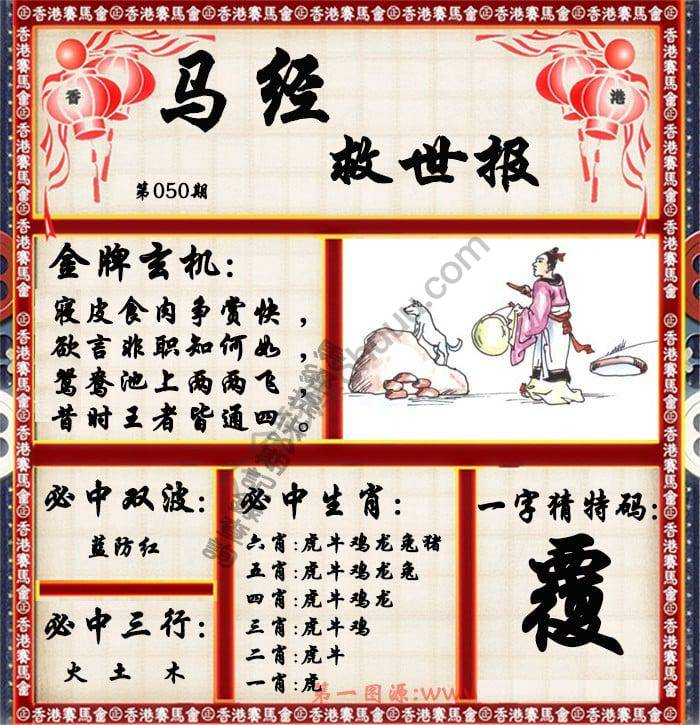 香港賽馬會
香
港
马经
救世报
第050期
金牌玄机：
寝皮食肉争赏快，
欲言非职知何如，
鸳鸯池上两两飞，
昔时王者皆通四。
必中双波：
蓝防红
必中三行：
火 土 木
必中生肖：
六肖:虎牛鸡龙兔猪
五肖:虎牛鸡龙兔
四肖:虎牛鸡龙
三肖:虎牛鸡
二肖:虎牛
一肖:虎
一字猜特码：
覆
第一图源:www